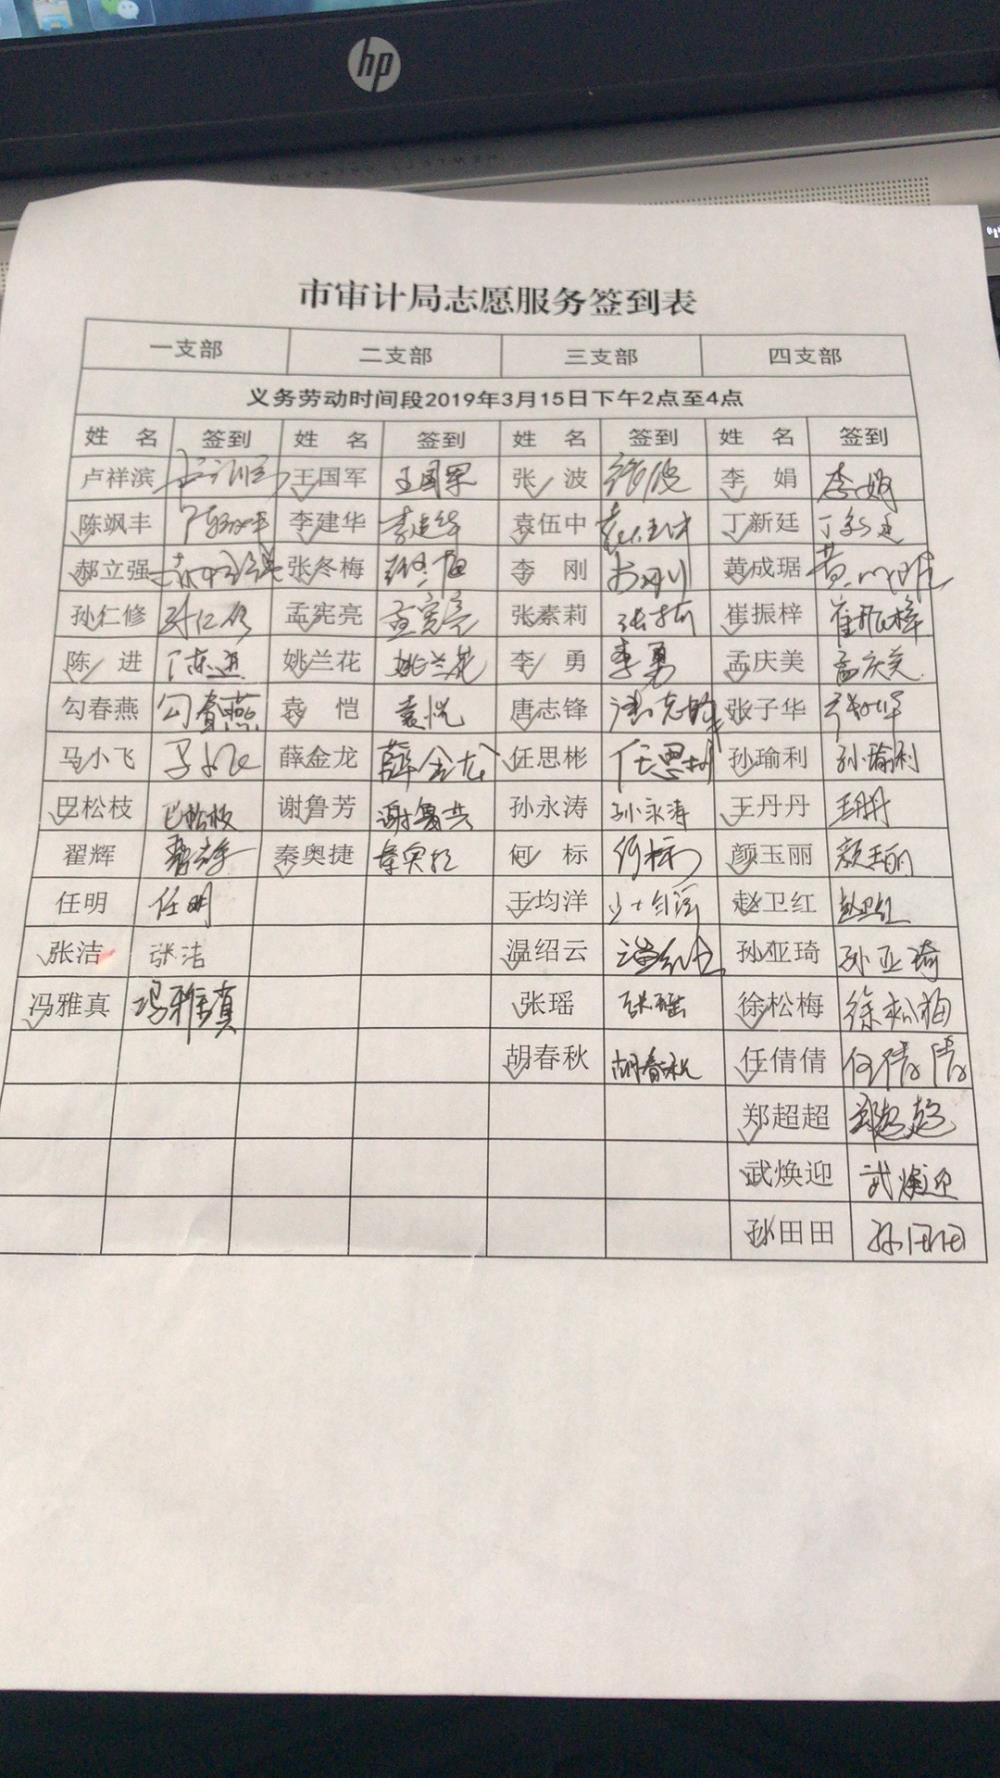 hp
市审计局志愿服务签到表
一支部 二支部 三支部 四支部
义务劳动时间段2019年3月15日下午2点至4点
姓 名 签到 姓 名 签到 姓 名 签到 姓 名 签到
卢祥滨 王国军 王国军 张 波 张波 李 娟 李娟
陈飒丰 李建华 李建华 袁伍中 袁伍中 丁新廷 丁新廷
郝立强 张冬梅 张冬梅 李 刚 黄成琚
孙仁修 孙仁修 孟宪亮 孟宪亮 张素莉 崔振梓 崔振梓
陈 进 陈进 姚兰花 姚兰花 李 勇 李勇 孟庆美 孟庆美
勾春燕 勾春燕 袁 恺 袁恺 唐志锋 唐志锋 张子华
马小飞 马小飞 薛金龙 薛金龙 任思彬 任思彬 孙瑜利 孙瑜利
巴松枝 巴松枝 谢鲁芳 谢鲁芳 孙永涛 孙永涛 王丹丹 王丹丹
翟辉 秦奥捷 秦奥捷 何 标 何标 颜玉丽 颜玉丽
任明 任明 王均洋 赵卫红 赵卫红
张洁 张洁 温绍云 孙亚琦 孙亚琦
冯雅真 冯雅真 张瑶 张瑶 徐松梅 徐松梅
胡春秋 胡春秋 任倩倩 任倩倩
郑超超 郑超超
武焕迎 武焕迎
孙田田 孙田田